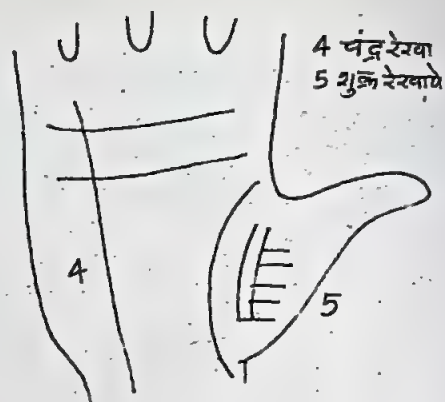 4 चंद्र रेखा
5 शुक्र रेखायें
4
5